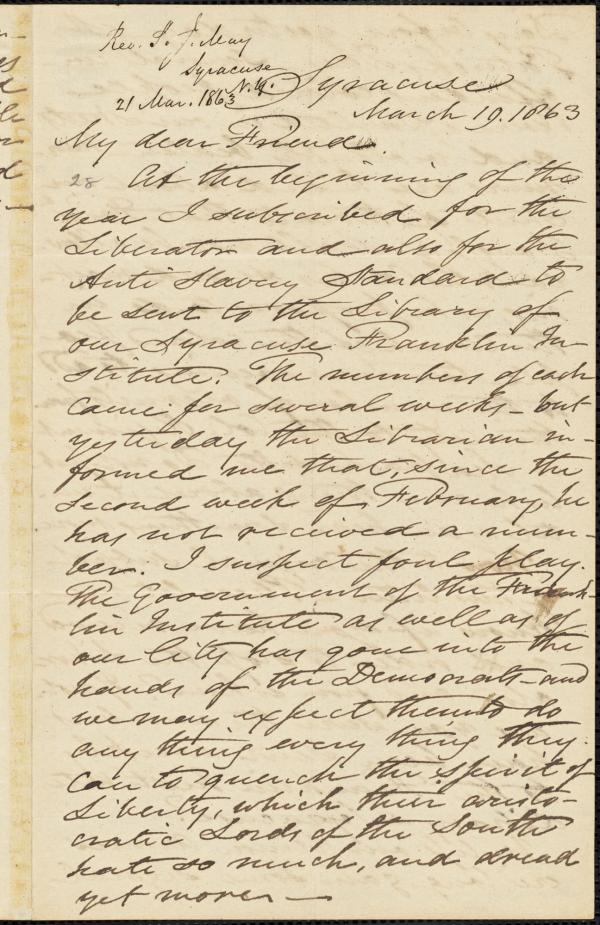 Rev. S. J. May
Syracuse
N.Y.
21 Mar. 1863
Syracuse
March 19. 1863
My dear Friend.
28 At the beginning of the
year I subscribed for the
Liberator and also for the
Anti Slavery Standard to
be sent to the Library of
our Syracuse Franklin In-
stitute. The numbers of each
came for several weeks - but
yesterday the Librarian in-
formed me that, since the
second week of February, he
has not received a num-
ber. I suspect foul play.
The Government of the Frank-
lin Institute as well as of
our City has gone into the
hands of the Democrats - and
we may expect them to do
any thing every thing they
can to quench the spirit of
Liberty, which their aristo-
cratic Lords of the South
hate so much, and dread
yet more. —